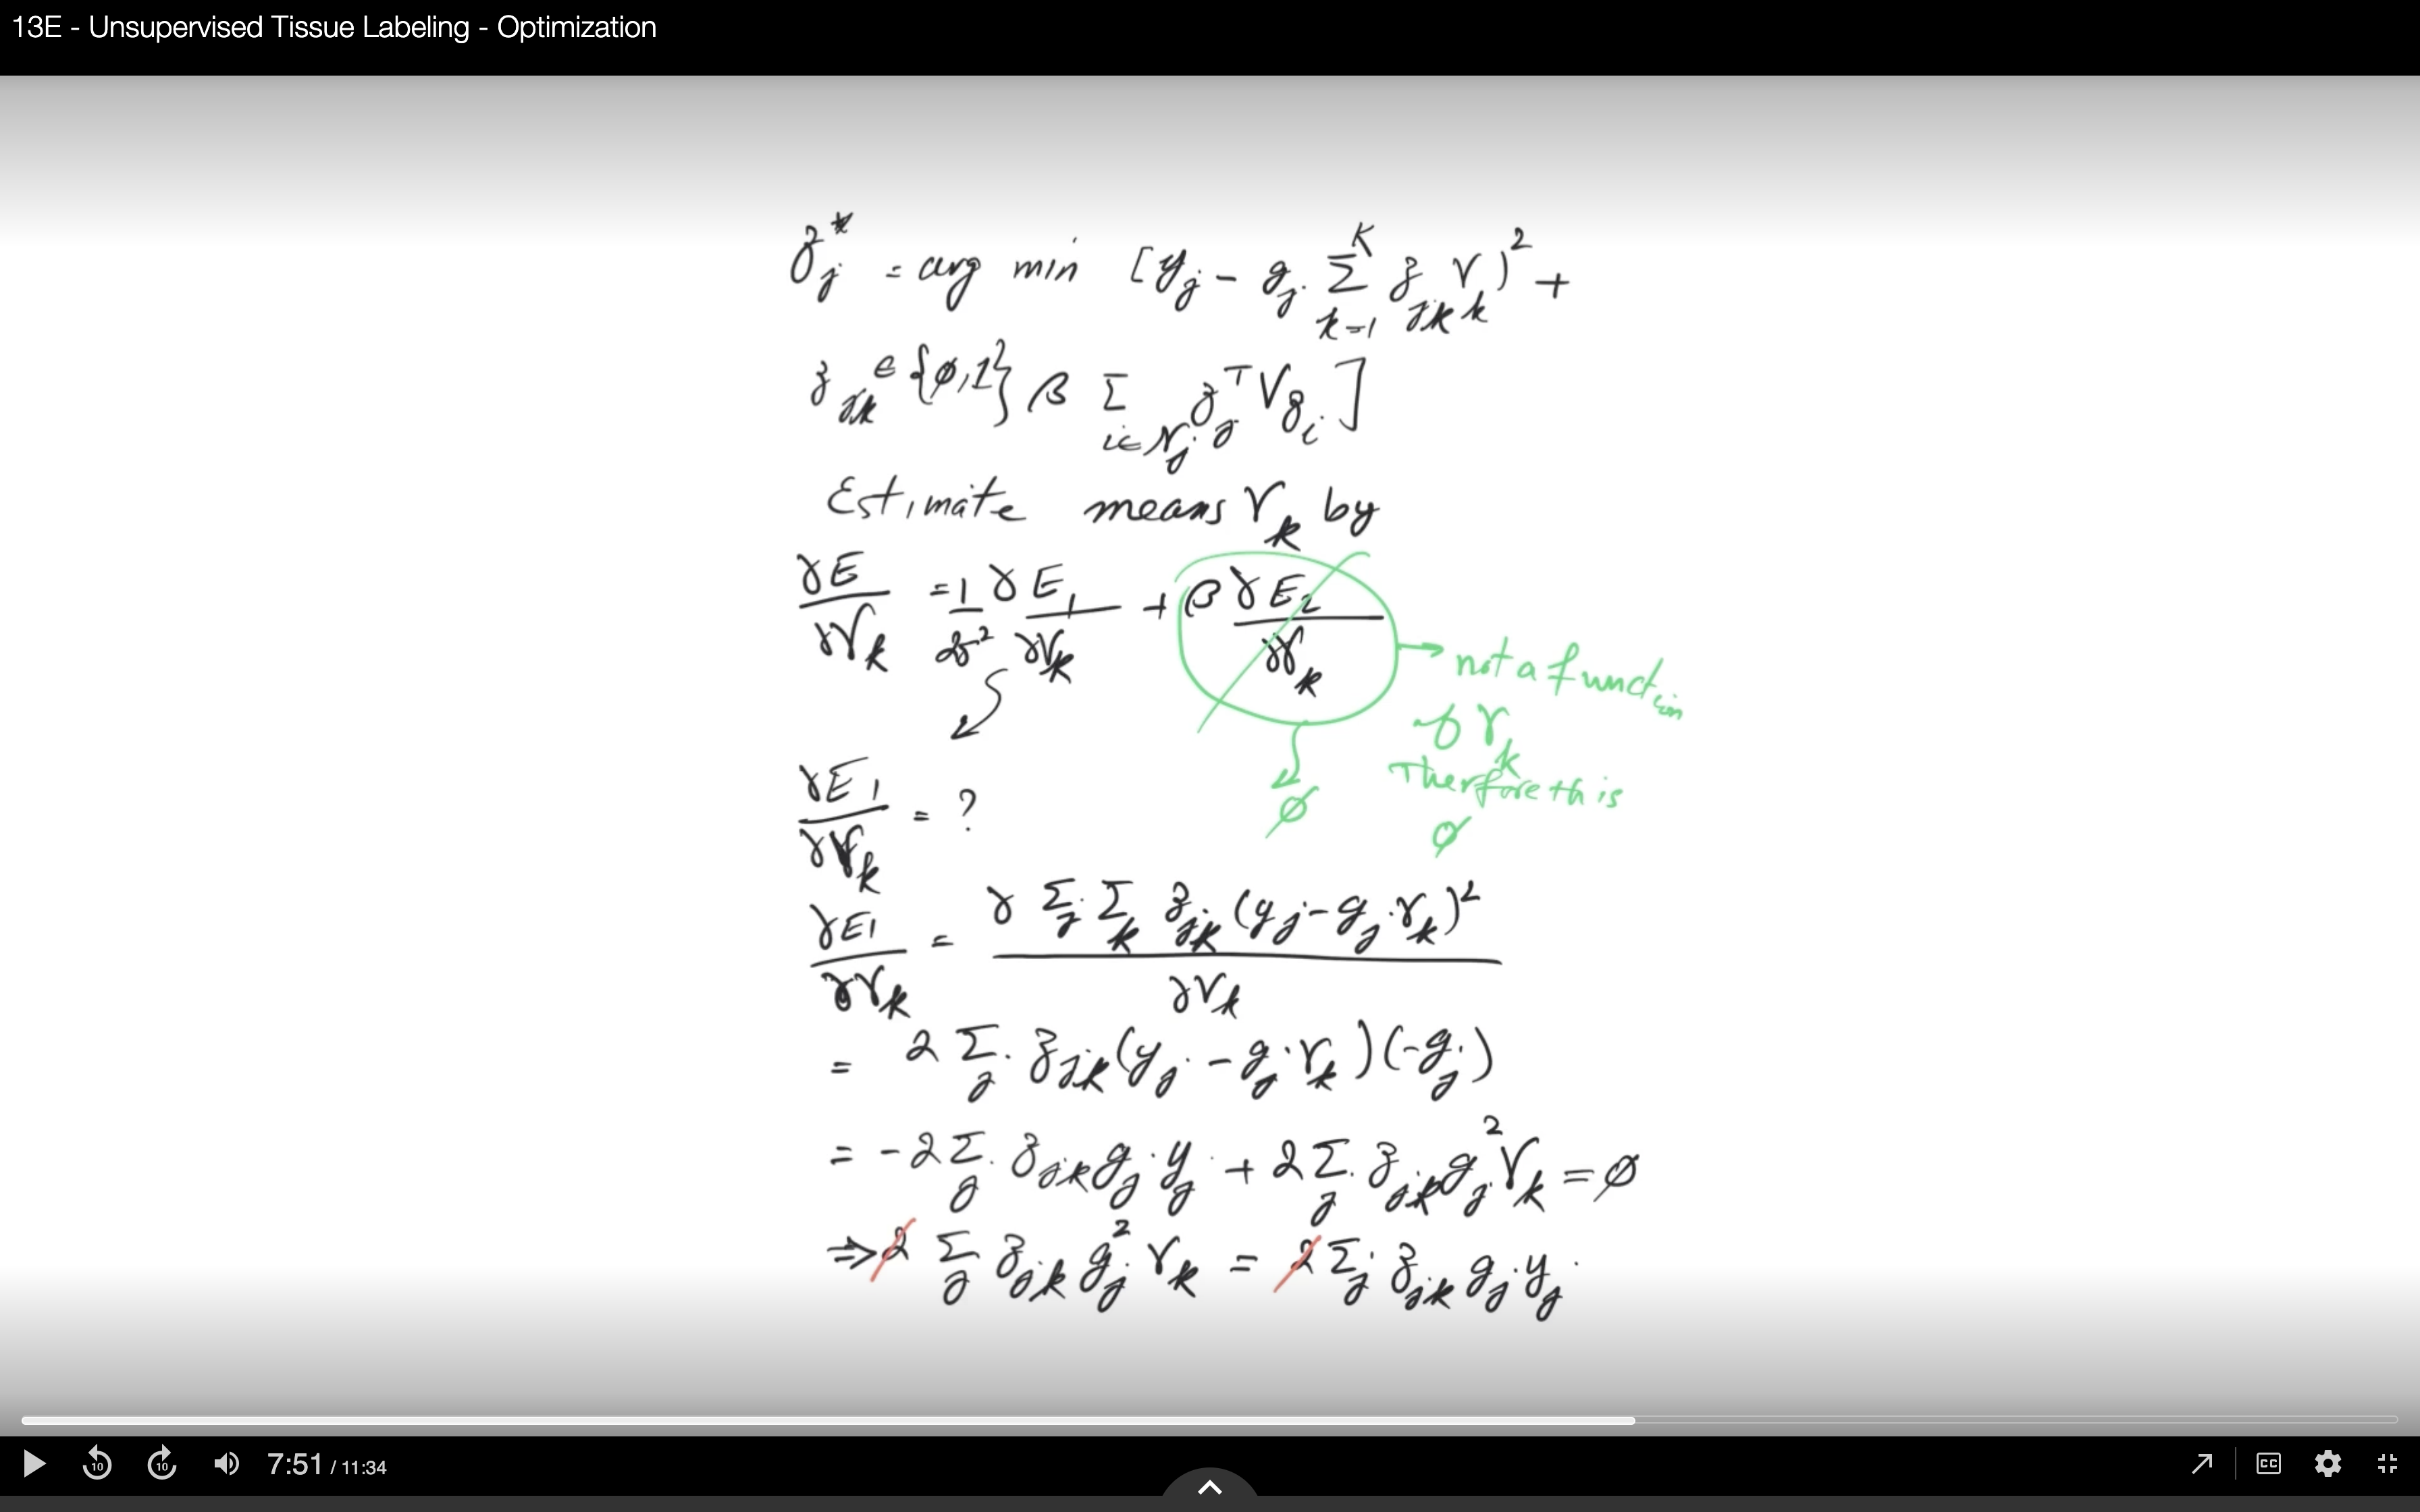 13E - Unsupervised Tissue Labeling - Optimization
z_j^* = arg min [y_j - g_j Σ_{k=1}^{K} z_{jk} r_k)^2 +
z_{jk} ∈ {∅,1} β Σ_{i∈N_j} z_j^T V z_i ]
Estimate means r_k by
γE/γr_k = 1/2σ^2 γE_1/γr_k + β γE_2/γr_k → not a function
of r_k
Therefore this is
∅
∅
γE_1/γr_k = ?
γE_1/γr_k = γ Σ_j Σ_k z_{jk} (y_j - g_j r_k)^2 / γr_k
= 2 Σ_j z_{jk} (y_j - g_j r_k) (-g_j)
= -2 Σ_j z_{jk} g_j y_j + 2 Σ_j z_{jk} g_j^2 r_k = ∅
⇒ 2 Σ_j z_{jk} g_j^2 r_k = 2 Σ_j z_{jk} g_j y_j
10 10 7:51 / 11:34 CC